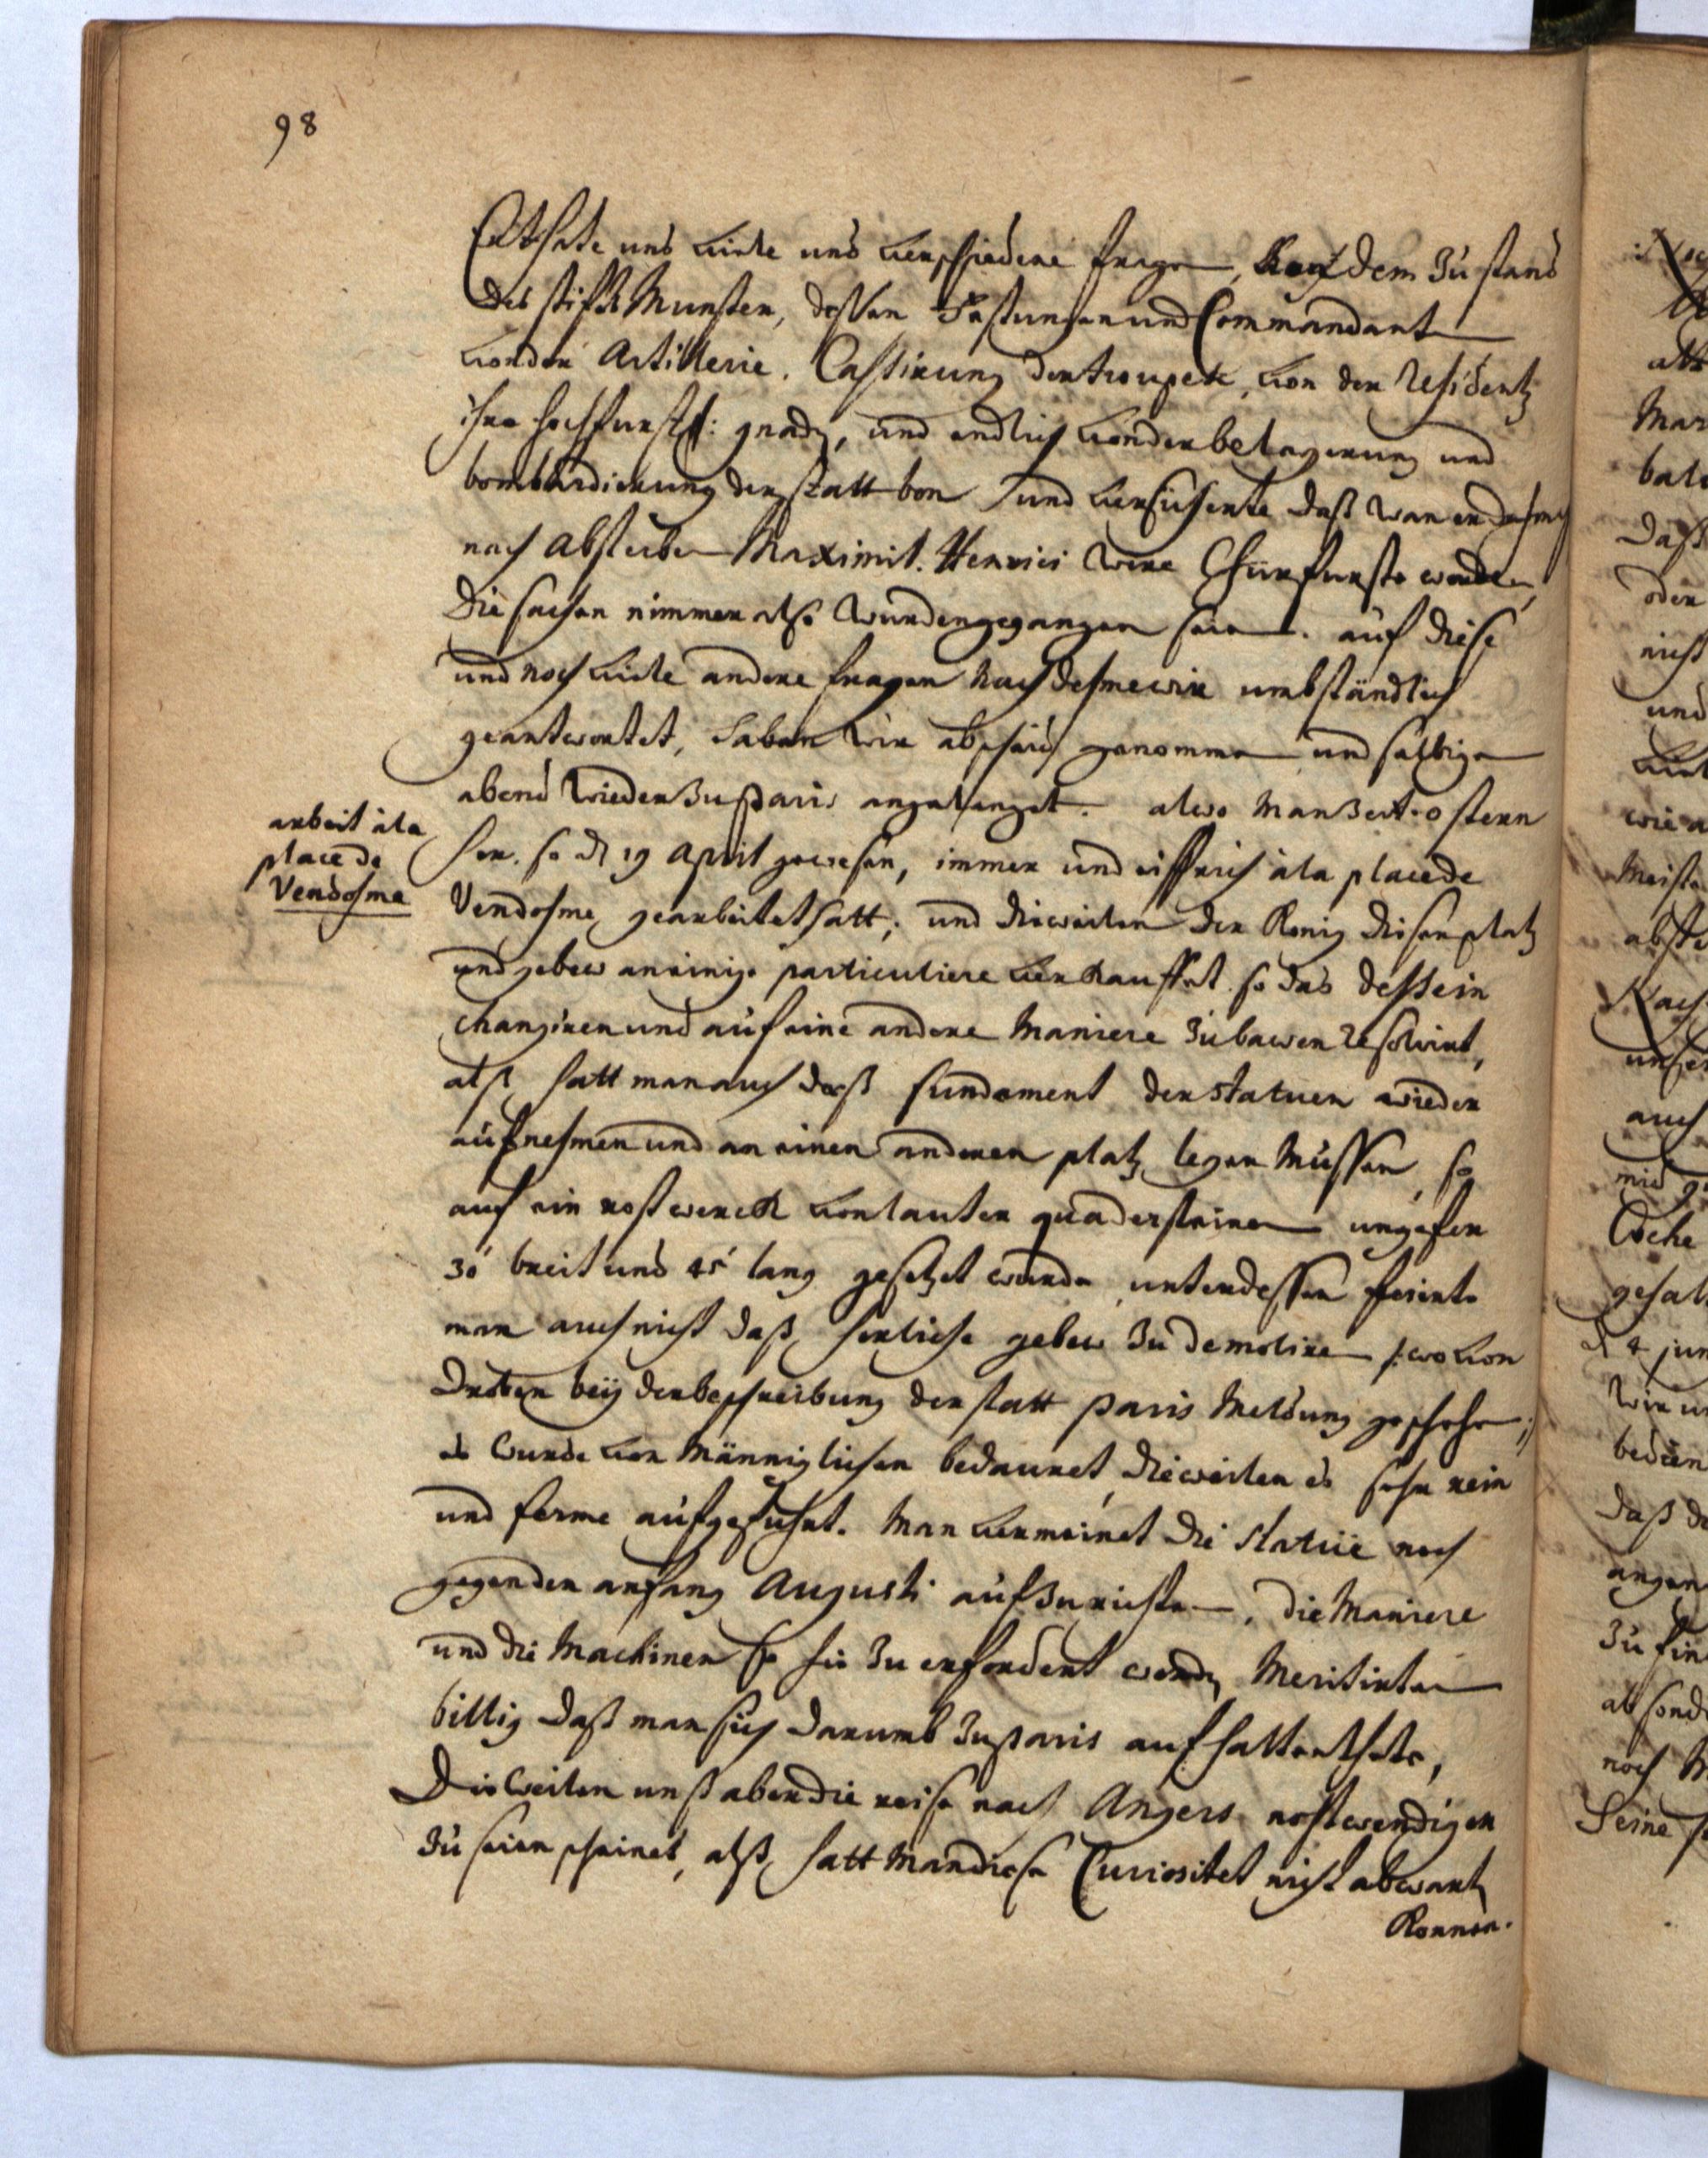 98
Er thete uns viele uns verschiedene fragen, nach dem Zustand
des stiffts Munster, dessen Fastungen und Commandanten
von der Artillerie. Cassirung der troupete, von der Residentz
ihro hochfurstl: gnad, und endlich von der belagerung und
bombardierung der statt bon und versicherte daß wan er dahmahls
nach absterben Maximil. Henrici were Churfurste worden,
die sachen nimmer also wurden gegangen seien. auf diese
und noch viele andere fragen nach dehme wir umbständlich
geantwortet, haben wir abscheid genommen und selbigen
abend wieder zu Paris angelanget. alwo man seit ostern
her. so d 19 April gewesen, immer und eiffrich à la place de
Vendosme gearbeitet hatt; und dieweilen der Konig diesen platz
und gebew an einige particuliere verkauffet. so das dessein
changiren und auf eine andere Maniere zu bawen resolvirt,
alß hatt man auch daß fundament der statuen wieder
aufnehmen und an einen anderen platz legen mussen, so
auf ein rostwerck von lauter quadersteinen ungefer
30' breit und 45' lang gesetzet wurde, unterdessen feirte
man auch nicht daß herliche gebew zu demoliren /: wo von
droben beÿ der beschreibung der statt Paris meldung geschehen :/
es wurde von männiglichen bedauret, dieweilen es sehr rein
und ferme aufgefuhrt. Man vermeinet die statüe noch
gegen den anfang Augusti aufzurichten. die Maniere
und die Machinen so hie zu erfordert werden, meritirten
billig daß man sich darumb zu Paris aufhalten thete,
Dieweilen unß aber die reise nach Angers nohtwendiger
zu seien scheinet, alß hatt man diese Curiositet nicht abwarten
Konnen.
arbeit à la
place de
Vendosme